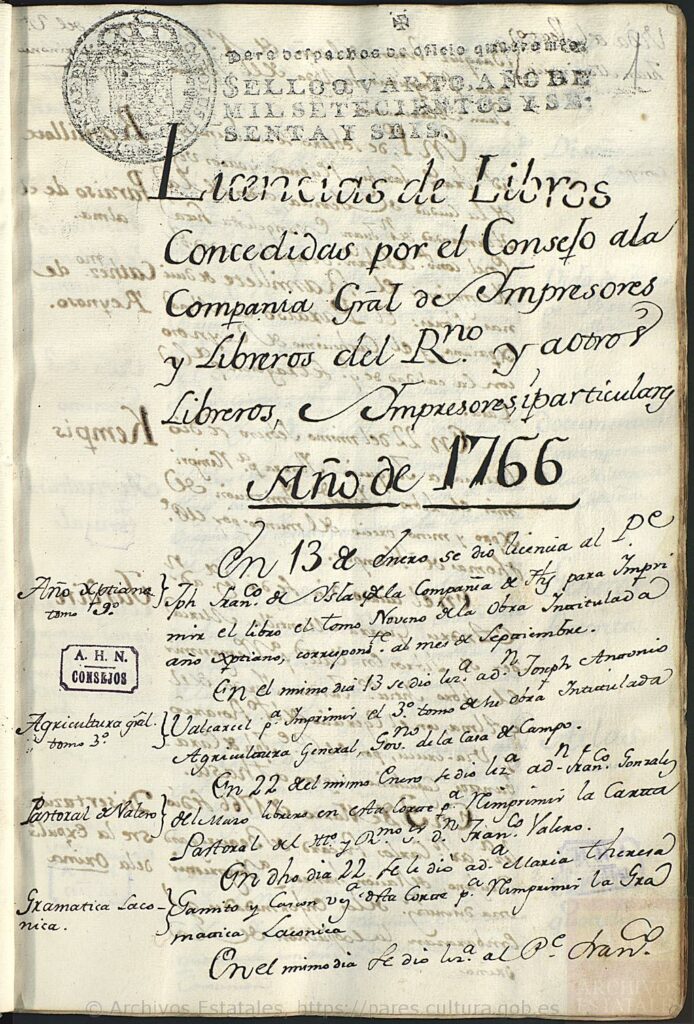 Para despachos de oficio quatro mrs.
SELLO QVARTO, AÑO DE
MIL SETECIENTOS Y SE-
SENTA Y SEIS.
Licencias de Libros
Concedidas por el Consejo ala
Compañia Grāl de Impresores
y Libreros del Rno. y aotros
Libreros, e Impresores particulares
Año de 1766
En 13 de Enero se dio licencia al Pe
Año Xptiano tomo 9º.
Jph Franco. de Isla de la Compañia de Jhs para Impri
mir el libro el tomo Noveno de la Obra Intitulada
año Xptiano, correspondte. al mes de Septiembre.
A. H. N.
CONSEJOS
En el mismo dia 13 se dio liza. adn. Joseph Antonio
Agricultura grāl. tomo 3º.
Valcarcel pa. Imprimir el 3º. tomo de su obra Intitulada
Agricultura General, Govno. de la Casa de Campo.
En 22 del mismo Enero se dio liza. adn. Franco. Gonzalez
Pastoral de Valero
del Mazo librero en esta Corte pa. Reimprimir la Carta
Pastoral del Illo. y Rmo. Sr. dn. Franco. Valero.
En dho dia 22 se le dio ada. Maria Theresa
Gramatica Laco-
nica.
Garrito y Cascon vza. desta Corte pa. Reimprimir la Gra
matica Laconica
En el mismo dia se dio liza. al Pe. Franco.
© Archivos Estatales, https://pares.cultura.gob.es
ARCHIVOS
ESTATALES